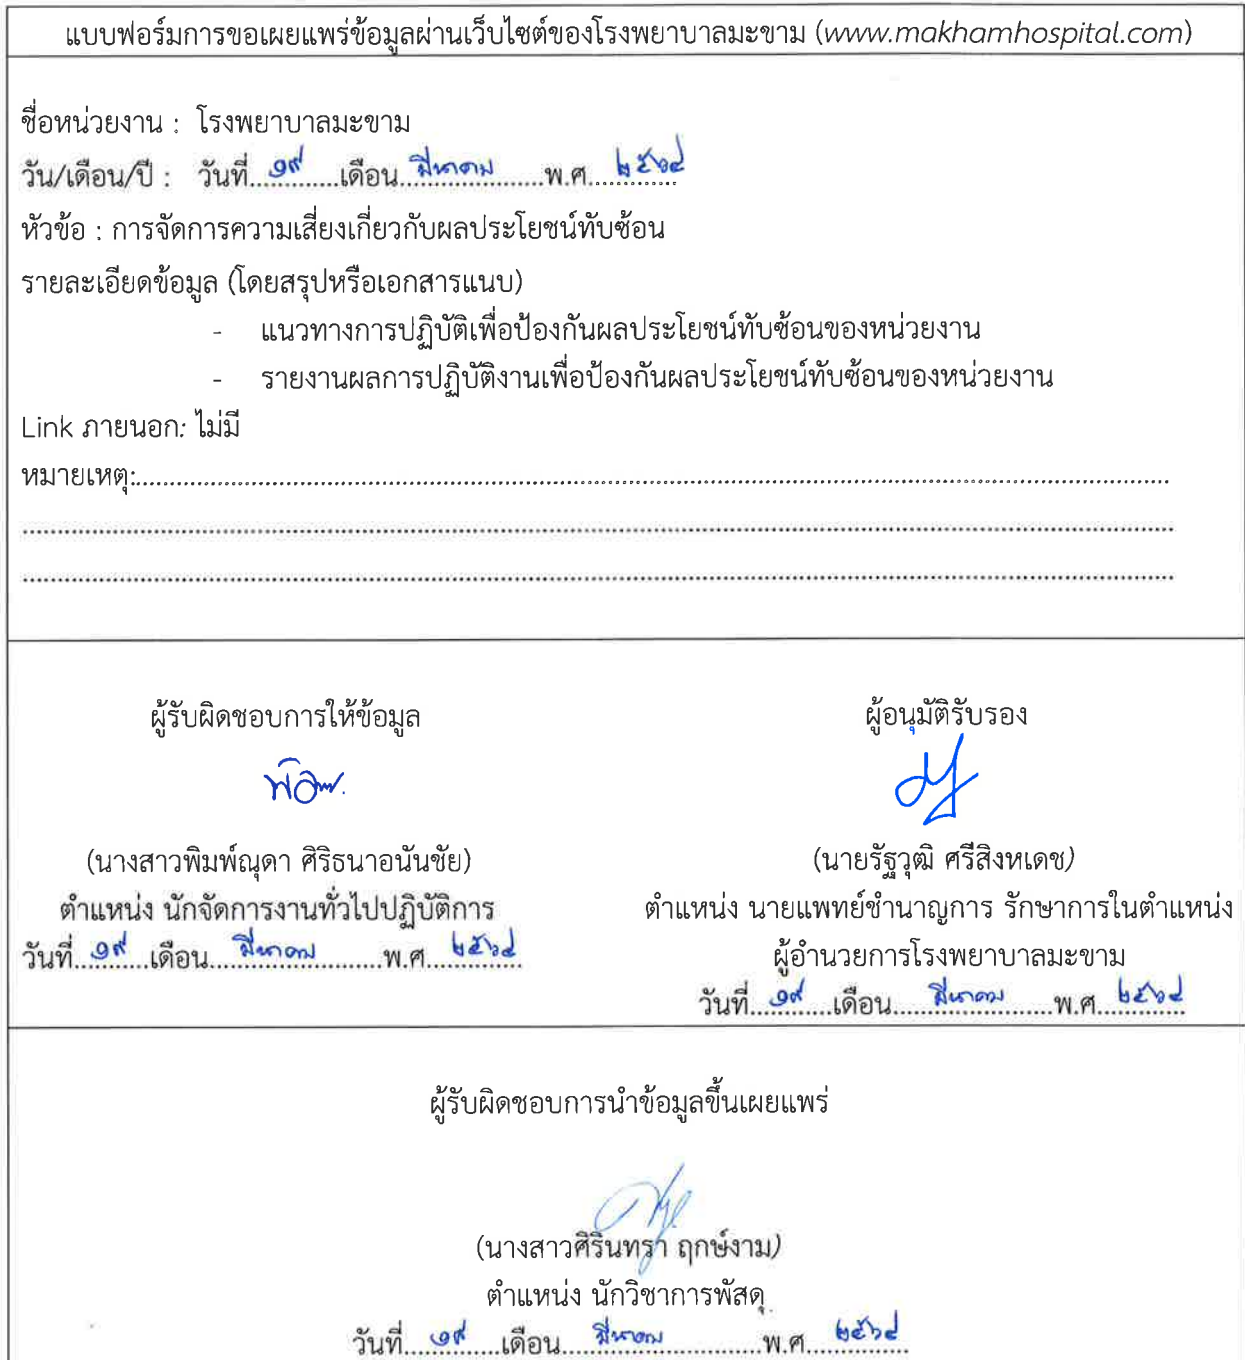 แบบฟอร์มการขอเผยแพร่ข้อมูลผ่านเว็บไซต์ของโรงพยาบาลมะขาม (www.makhamhospital.com)
ชื่อหน่วยงาน : โรงพยาบาลมะขาม
วัน/เดือน/ปี : วันที่...๑๙...เดือน...มีนาคม...พ.ศ...๒๕๖๔
หัวข้อ : การจัดการความเสี่ยงเกี่ยวกับผลประโยชน์ทับซ้อน
รายละเอียดข้อมูล (โดยสรุปหรือเอกสารแนบ)
- แนวทางการปฏิบัติเพื่อป้องกันผลประโยชน์ทับซ้อนของหน่วยงาน
- รายงานผลการปฏิบัติงานเพื่อป้องกันผลประโยชน์ทับซ้อนของหน่วยงาน
Link ภายนอก: ไม่มี
หมายเหตุ:
ผู้รับผิดชอบการให้ข้อมูล
(นางสาวพิมพ์ณุดา ศิริธนาอนันชัย)
ตำแหน่ง นักจัดการงานทั่วไปปฏิบัติการ
วันที่...๑๙...เดือน...มีนาคม...พ.ศ...๒๕๖๔
ผู้อนุมัติรับรอง
(นายรัฐวุฒิ ศรีสิงหเดช)
ตำแหน่ง นายแพทย์ชำนาญการ รักษาการในตำแหน่ง
ผู้อำนวยการโรงพยาบาลมะขาม
วันที่...๑๙...เดือน...มีนาคม...พ.ศ...๒๕๖๔
ผู้รับผิดชอบการนำข้อมูลขึ้นเผยแพร่
(นางสาวศิรินทรา ฤกษ์งาม)
ตำแหน่ง นักวิชาการพัสดุ
วันที่...๑๙...เดือน...มีนาคม...พ.ศ...๒๕๖๔